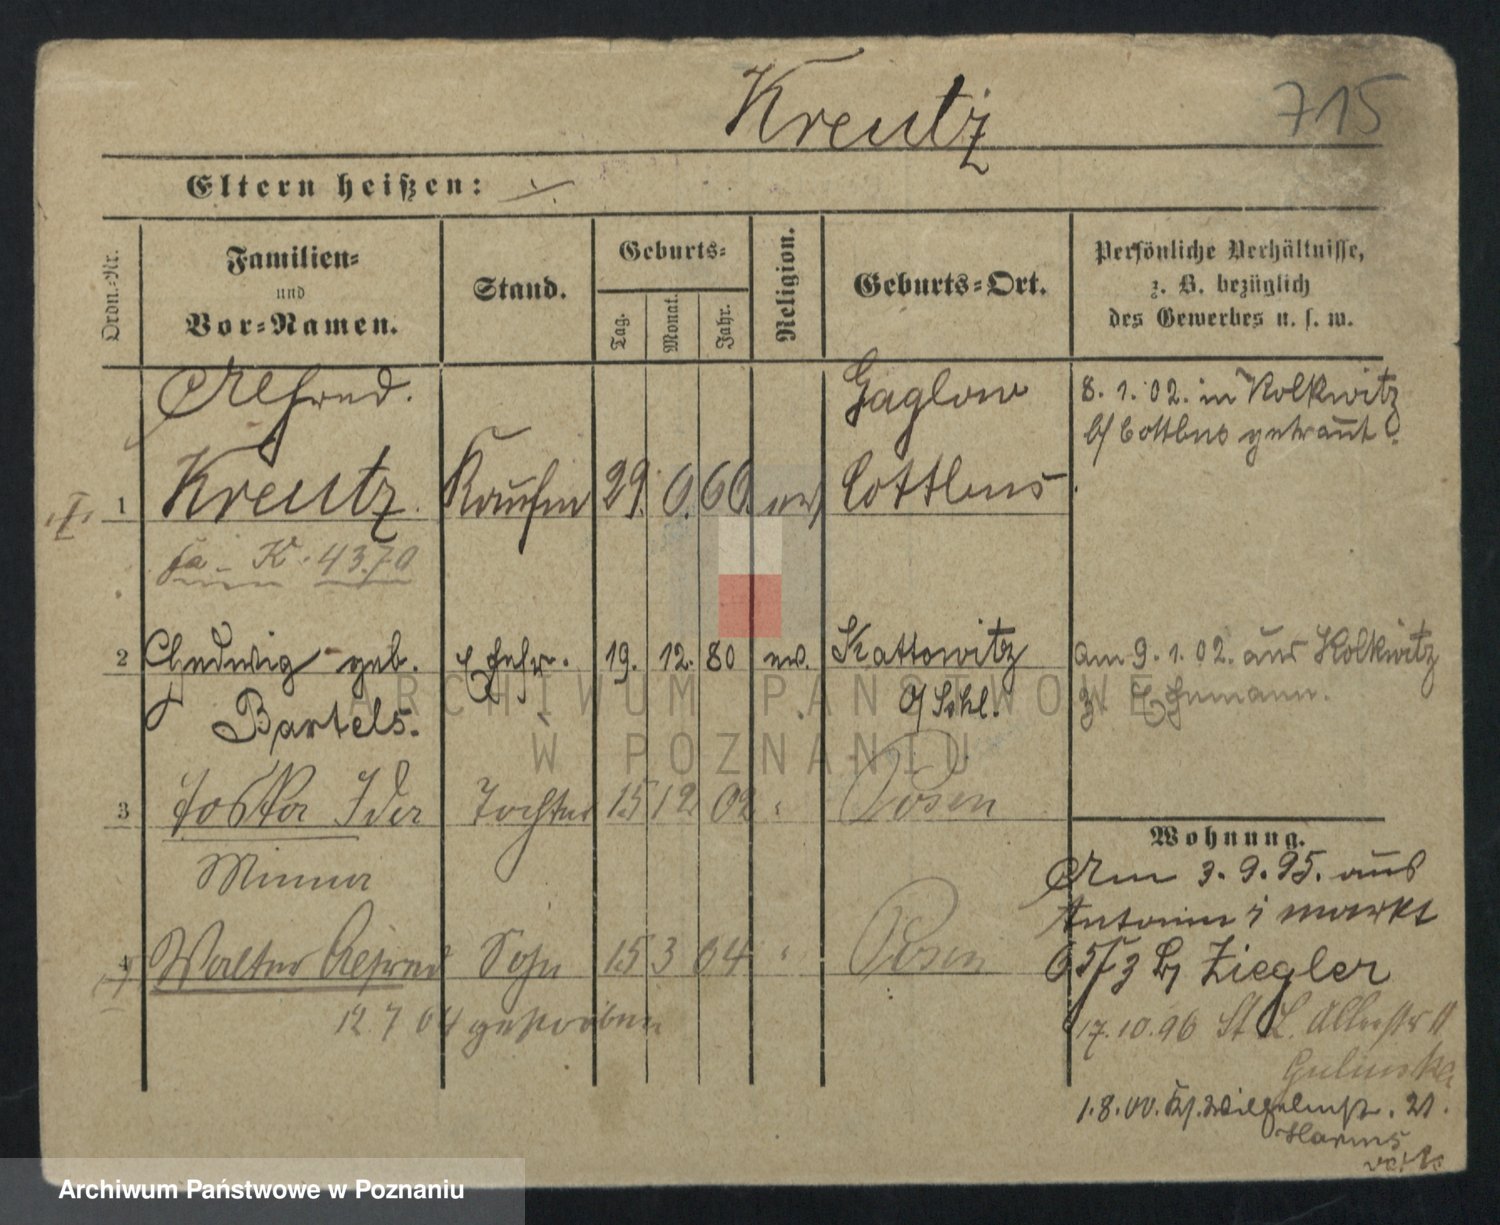 Kreutz
715
Eltern heißen: ./.
Ordn.-Nr.
Familien-
und
Vor-Namen.
Stand.
Geburts-
Tag.
Monat.
Jahr.
Religion.
Geburts-Ort.
Persönliche Verhältnisse,
z. B. bezüglich
des Gewerbes u. s. w.
Alfred
Gaglow
8. 1. 02. in Kolkwitz
b/ Cottbus getraut.
1 Kreutz Kaufm 29. 60. ev. Cottbus
K. 4370
2 Hedwig geb. Ehefr. 19. 12. 80 ev. Kattowitz
am 9. 1. 02. aus Kolkwitz
Bartels. O/Schl.
z. Ehemann.
3 Ida Tochter 15 12 02 " Posen
Wohnung.
Minna
Am 3. 9. 95. aus
4 Walter Alfred Sohn 15 3 04 " Posen
Ziegler
12 7 04 gestorben
17. 10. 96 St. L.
Gulinska
1. 8. 00. Wilhelmstr. 21.
Harms
ARCHIWUM PAŃSTWOWE
W POZNANIU
Archiwum Państwowe w Poznaniu